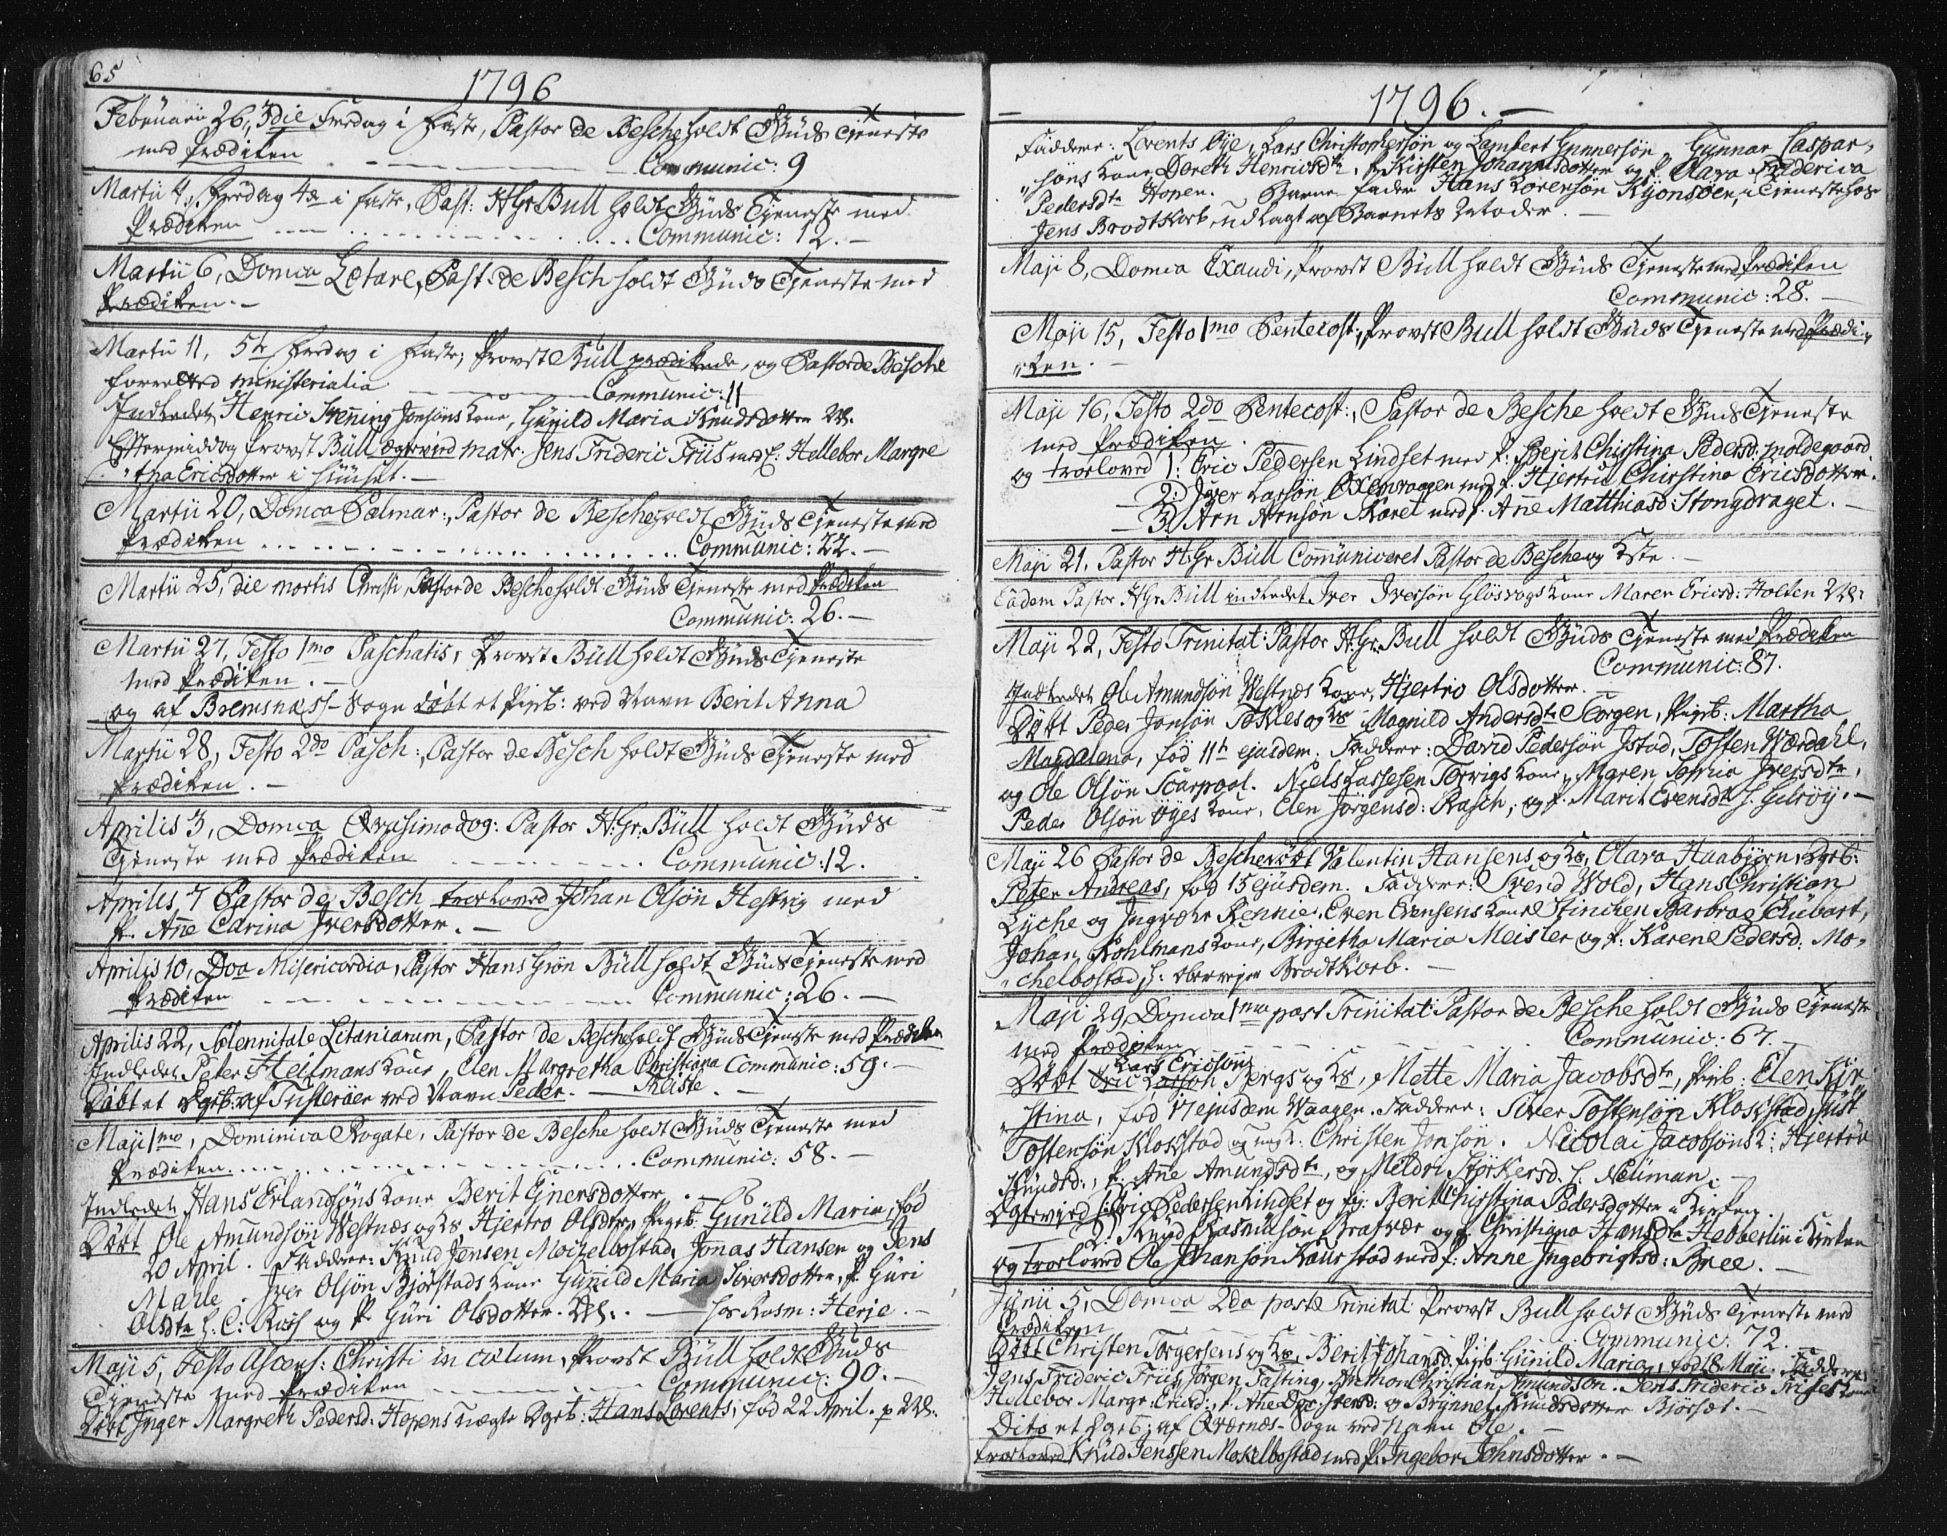 65
1796
Februarii 26, 3die Fredag i Faste, Pastor de Besche holdt Guds Tjeneste
med Prædiken Communic: 9
Martii 4, Fredag 4de i Faste, Past: H. Gr. Bull holdt Guds Tjeneste med
Prædiken Communic: 12.
Martii 6, Domca Lætare, Past. de Besch holdt Guds Tjeneste med
Prædiken.
Martii 11, 5te Fredag i Faste, Provst Bull prædikede, og Pastor de Besche
forretted ministerialia Communic: 11
Indledet Henric Henning Jonsøns Kone, Gunild Maria Knudsdotter
Eftermiddag Provst Bull ægtevied matr. Jens Frideric Friis med f. Hellebor Margre
tha Ericsdotter i Huuset.
Martii 20, Domca Palmar:, Pastor de Besche holdt Guds Tjeneste med
Prædiken Communic: 22.
Martii 25, die mortis Christi, Pastor de Besche holdt Guds Tjeneste med Prædiken
Communic: 26.
Martii 27, Festo 1mo Paschatis, Provst Bull holdt Guds Tjeneste
med Prædiken.
og af Bremsnæs Sogn døbt et Pigeb: ved Navn Berit Anna
Martii 28, Festo 2do Pasch:, Pastor de Besch holdt Guds Tjeneste med
Prædiken.
Aprilis 3, Domca Qvasimodog: Pastor H. Gr. Bull holdt Guds
Tjeneste med Prædiken Communic: 12.
Aprilis 7 Pastor de Besch troeloved Johan Olsøn Hestvig med
P. Anne Carina Iversdotter.
Aprilis 10, Doa Misericordia, Pastor Hans Grøn Bull holdt Guds Tjeneste med
Prædiken Communic: 26.
Aprilis 22, Solennitate Litaniarum, Pastor de Besche holdt Guds Tjeneste med Prædiken
Indledet Peter Heilmans Kone, Elen Margretha Christiana Communic: 59.
Døbt et Dgeb: af Tusterøen ved Navn Peder.
Maji 1mo, Dominica Rogate, Pastor de Besche holdt Guds Tjeneste med
Prædiken Communic: 58.
Indledet Hans Erlandsøns Kone Berit Ejnersdotter.
Døbt Ole Amundsøn Westnæs og Ks Hjertro Olsdtrs Pigeb: Gunild Maria, fød
20 April. Faddere: Knud Jensen Moizelbostad, Jonas Hansen og Jens
Mahle. Iver Olsøn Bjørstads Kone Gunild Maria Siversdotter, P. Guri
Olsdtr h. C: og P. Guri Olsdotter. hos Rasm: Herje.
Maji 5, Festo Ascens: Christi in cœlum, Provst Bull holdt Guds
Tjeneste med Prædiken Communic: 90.
Døbt Inger Margreth Pedersd: Hopens uægte Dgeb: Hans Lorents, fød 22 April.
1796.
Faddere: Lorents Øye, Lars Christophersøn og Lambert Gunnersøn, Gunnar Caspar-
søns Kone Doreth Henricsdtr, P. Kirsten Johannsdotter og P. Clara Friderica
Pedersdtr Hopen. Barne Fader Hans Lorensøn Kjønsøen, i Tjeneste hos
Jens Brodtkorb, udlagt af Barnets Moder.
Maji 8, Domca Exaudi, Provst Bull holdt Guds Tjeneste med Prædiken
Communic: 28.
Maji 15, Festo 1mo Pentecost:, Provst Bull holdt Guds Tjeneste med Prædi-
ken.
Maji 16, Festo 2do Pentecost:, Pastor de Besche holdt Guds Tjeneste
med Prædiken.
og troeloved 1: Eric Pedersen Lindset med P: Berit Christina Pedersd: moldegaard.
2: Iver Larsøn Oxenvaagen med P. Hjertru Christina Ericsdotter.
3: Arn Arnsøn Karet med P. Anne Matthiasd Stongdraget.
Maji 21, Pastor H. Gr. Bull Communiceret Pastor de Besche og Kste.
Eadem Pastor H. Gr. Bull indledet Iver Iversøn Gløsvogs Kone Maren Ericsd: Holten
Maji 22, Festo Trinitat: Pastor H. Gr. Bull holdt Guds Tjeneste med Prædiken
Communic: 87.
Indledet Ole Amundsøn Westnæs Kone, Hjertro Olsdotter.
Døbt Peder Jonsøn Tokles og Ks Magnild Andersdtr Storgen, Pigeb: Martha
Magdalena, fød 11te ejusdem. Faddere: David Pedersøn Istad, Tosten Wærdahl,
og Ole Olsøn Scarpool. Niels Lassesen Torvigs Kone, Maren Sophia Iversdtr,
Peder Olsøn Øyes Kone, Elen Jørgensd: Rasch, og P. Marit Evensdtr h. Gilrøy.
Maji 26 Pastor de Besche døbt Valentin Hansens og Ks, Clara Haabjørn, Dgeb:
Peter Andreas, fød 15 ejusdem. Faddere: Svend Wold, Hans Christian
Lyche og Ingvahr Rennie. Even Evensens Kone Stinchen Barbra Schubart,
Johan Kohlmans Kone, Birgitha Maria Meisler og P. Karen Pedersd: Mo-
chelbostad, h: Brodtkorb.
Maji 29, Domca 1ma post Trinitat: Pastor de Besche holdt Guds Tjeneste
med Prædiken Communic: 67.
Lars Ericsøn
Døbt Eric Larsøn Bergs og Ks, Mette Maria Jacobsdtr, Pigeb: Elen Kir
stina, fød 17 ejusdem Waagen. Faddere: Siver Tostensøn Klokstad,
Tostensøn Klokstad og Christen Jonsøn. Nicolai Jacobsøns K: Hjertru
Knudsd:, P. Anne Amundsdtr, og Mildri Størkersd: h. Neuman.
Ægtevied 1: Eric Pedersen Lindset og P: Berit Christina Pedersdotter i Kirken.
2: Knud Rasmussøn og P. Christiana Hansdtr Hebberlin i Kirken
og troeloved Ole Johansøn Kaarstad med P: Anne Ingebrigtsd: Bree.
Junii 5, Domca 2da post Trinitat: Provst Bull holdt Guds Tjeneste med
Prædiken Communic: 72.
Døbt Christen Torgersens og Ks, Berit Johansd: Pigeb: Gunild Maria, fød 8 Maji. Faddere:
Jens Frideric Friis, Jørgen Fasting, Simon Christian Amundsøn. Jens Frideric Friises Kone
Hellebor Margr: Ericsd:, P. Iversd: og Brynnel Knudsdotter Bjørset.
Dito et Dgeb: af Qværnæs Sogn ved Navn Ole.
troeloved Knud Jenssen Mokelbostad med P: Ingebor Johnsdotter.